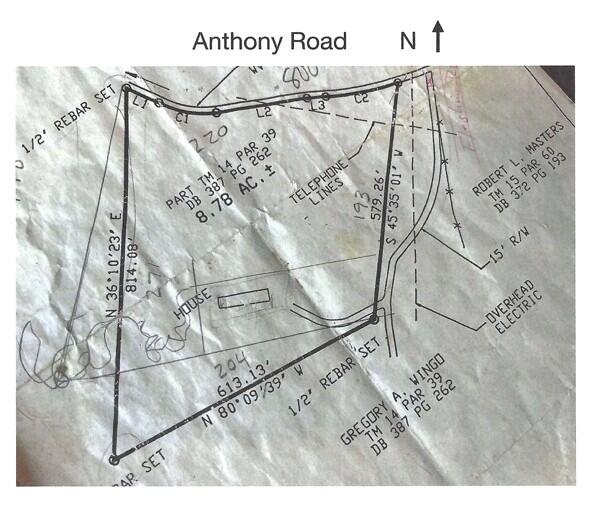 Anthony Road N
1/2" REBAR SET
L1
C1
L2
L3
C2
800
220
PART TM 14 PAR 39
DB 387 PG 262
8.78 AC. ±
TELEPHONE
LINES
193
579.26'
S 45°35'01" W
ROBERT L. MASTERS
TM 15 PAR 60
DB 372 PG 193
15' R/W
OVERHEAD
ELECTRIC
N 36°10'23" E
814.08'
271
HOUSE
204
613.13'
N 80°09'39" W
1/2" REBAR SET
GREGORY A. WINGO
TM 14 PAR 39
DB 387 PG 262
BAR SET